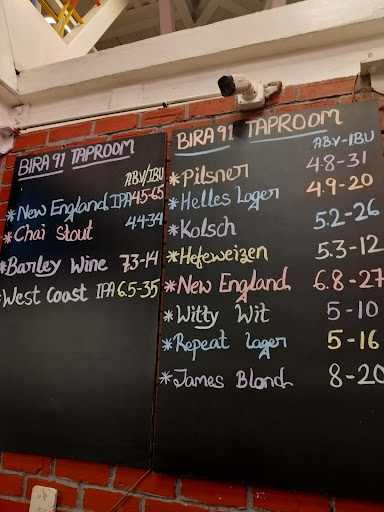 BIRA 91 TAPROOM
ABV/IBU
*New England IPA 4.5-65
*Chai Stout 4.4-34
*Barley Wine 7.3-14
*West Coast IPA 6.5-35
BIRA 91 TAPROOM
ABV-IBU
*Pilsner 4.8-31
*Helles Lager 4.9-20
*Kolsch 5.2-26
*Hefeweizen 5.3-12
*New England 6.8-27
*Witty Wit 5-10
*Repeat Lager 5-16
*James Blond 8-20